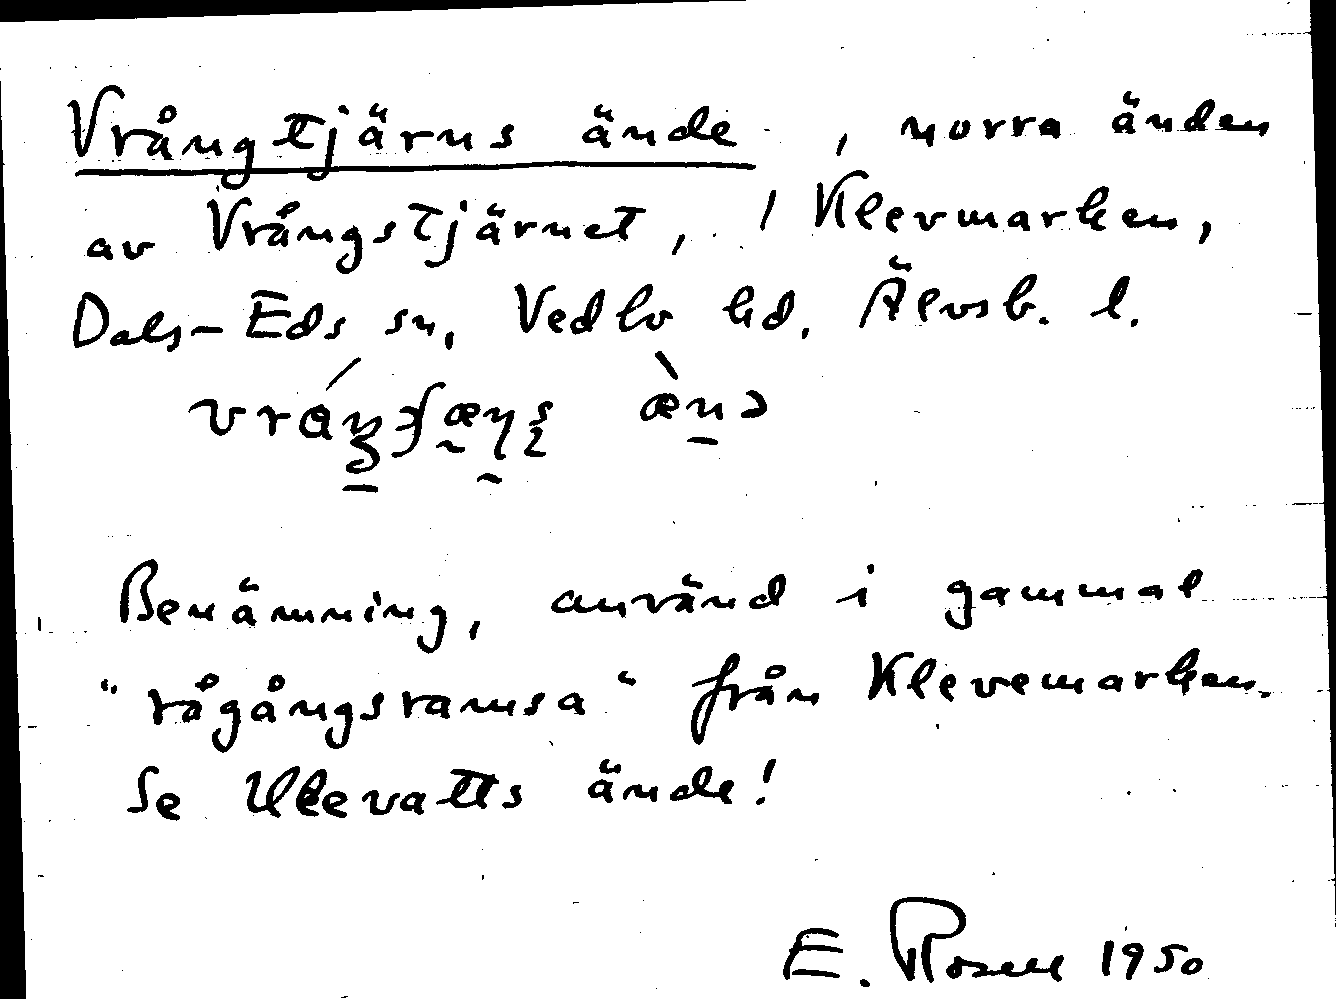 Vrångtjärns ände, norra änden
av Vrångstjärnet, / Klevmarken,
Dals-Eds sn, Vedbo hd. Älvsb. l.
ænə
Benämning, använd i gammal
"rågångsramsa" från Klevemarken.
Se Ulevatts ände!
E. Rosell 1950